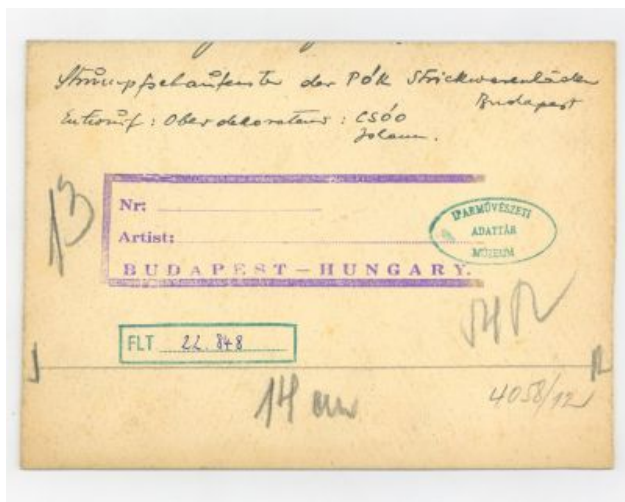 Strumpfschaufenster der PÓK Strickwarenläden
Budapest
Entwurf: Oberdekorateur: CSÓÓ
Jolann.
13
Nr:
Artist:
BUDAPEST—HUNGARY.
IPARMŰVÉSZETI
ADATTÁR
MÚZEUM
FLT 22.848
14 cm
4058/12